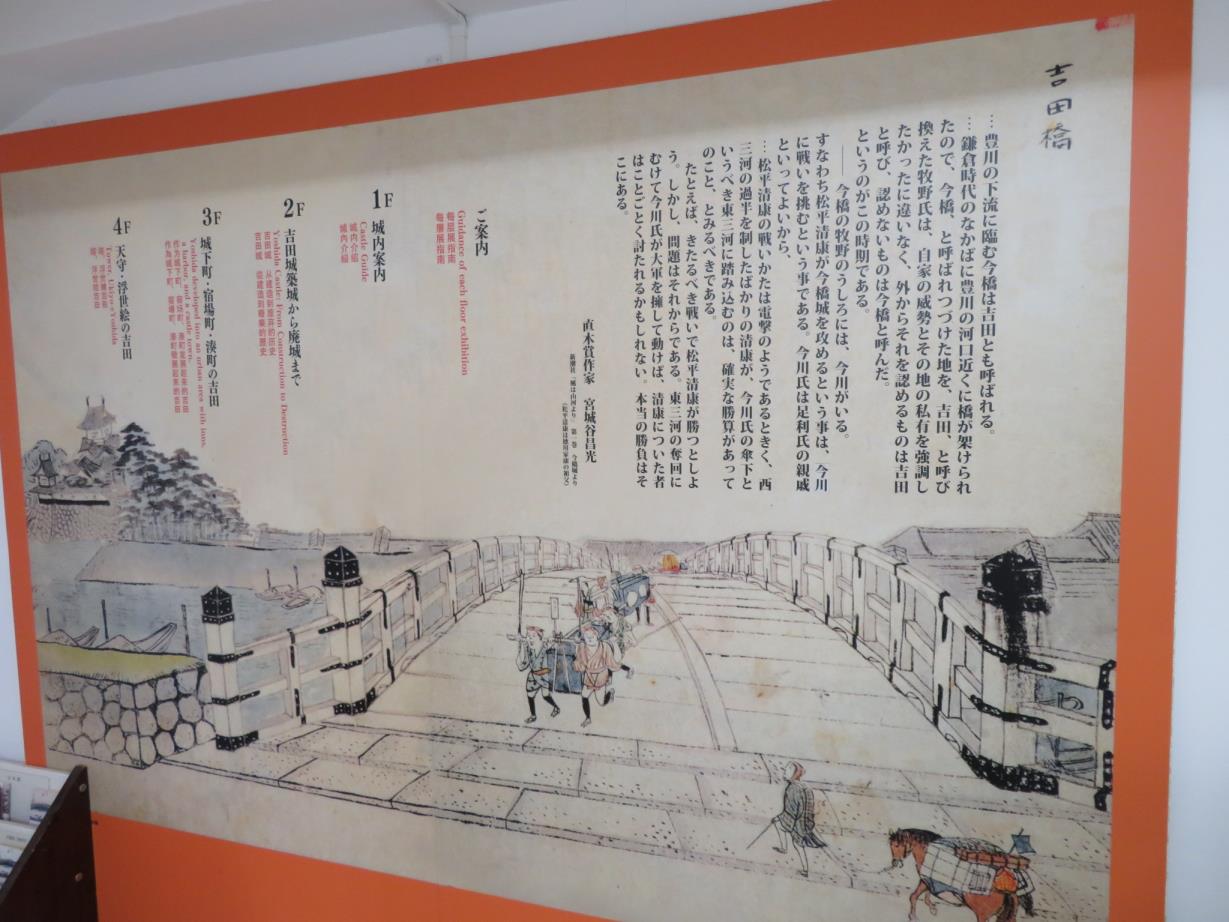 吉田橋
…豊川の下流に臨む今橋は吉田とも呼ばれる。
…鎌倉時代のなかばに豊川の河口近くに橋が架けられ
たので、今橋、と呼ばれつづけた地を、吉田、と呼び
換えた牧野氏は、自家の威勢とその地の私有を強調し
たかったに違いなく、外からそれを認めるものは吉田
と呼び、認めないものは今橋と呼んだ。
というのがこの時期である。
――今橋の牧野のうしろには、今川がいる。
すなわち松平清康が今橋城を攻めるという事は、今川
に戦いを挑むという事である。今川氏は足利氏の親戚
といってよいから、
…松平清康の戦いかたは電撃のようであるときく、西
三河の過半を制したばかりの清康が、今川氏の傘下と
いうべき東三河に踏み込むのは、確実な勝算があって
のこと、とみるべきである。
たとえば、きたるべき戦いで松平清康が勝つとしよ
う。しかし、問題はそれからである。東三河の奪回に
むけて今川氏が大軍を擁して動けば、清康についた者
はことごとく討たれるかもしれない。本当の勝負はそ
こにある。
直木賞作家 宮城谷昌光
新潮社「風は山河より」第一巻 今橋城より
(松平清康は徳川家康の祖父)
ご案内
Guidance of each floor exhibition
每层展指南
每層展指南
1F 城内案内
Castle Guide
城内介绍
城內介紹
2F 吉田城築城、から廃城まで
Yoshida Castle: From Construction to Destruction
吉田城 从建造到废弃的历史
吉田城 從建造到廢棄的歷史
3F 城下町・宿場町・湊町の吉田
Yoshida developed into an urban area with inns,
a harbor, and a castle town.
作为城下町、宿场町、湊町发展起来的吉田
作為城下町、宿場町、湊町發展起來的吉田
4F 天守・浮世絵の吉田
Tower, Ukiyo-e Yoshida